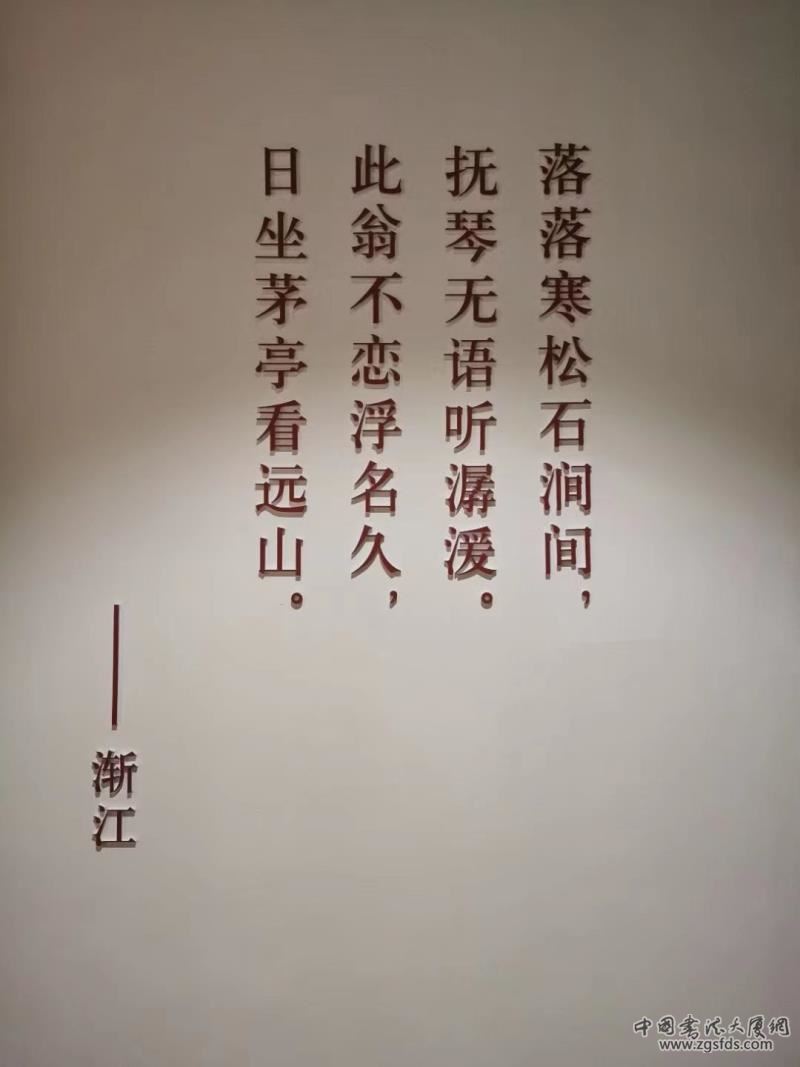 落落寒松石涧间，
抚琴无语听潺湲。
此翁不恋浮名久，
日坐茅亭看远山。
——渐江
中国书法大厦網
www.zgsfds.com